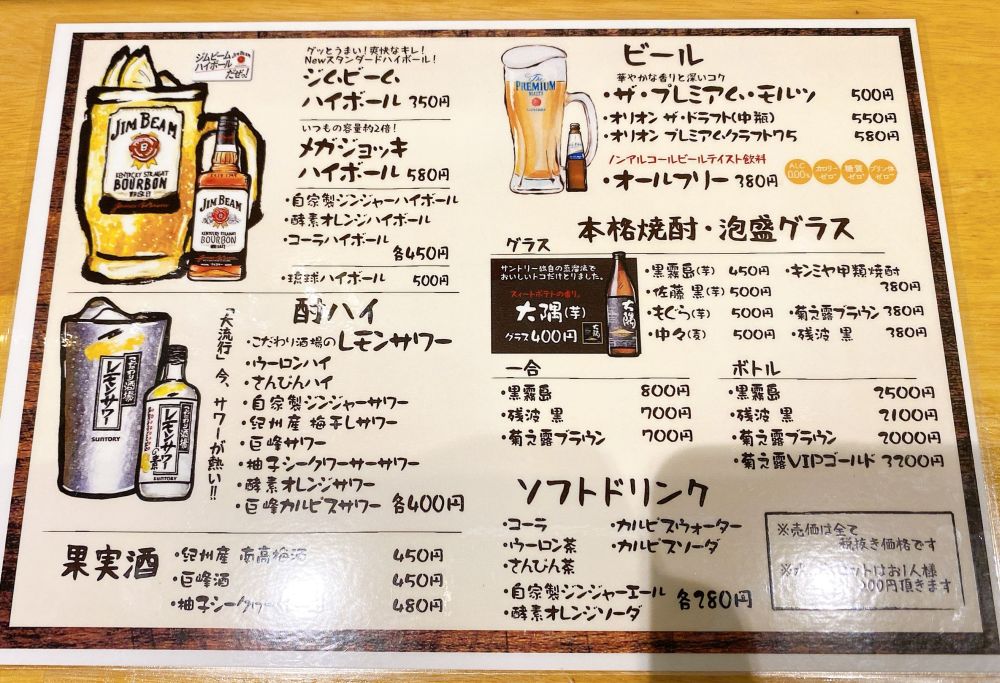 ジムビーム
ハイボール
だぜっ!
グッとうまい!爽快なキレ!
Newスタンダードハイボール!
ジムビーム
ハイボール 350円
いつもの容量約2倍!
メガジョッキ
ハイボール 580円
・自家製ジンジャーハイボール
・酵素オレンジハイボール
・コーラハイボール
各450円
・琉球ハイボール 500円
JIM BEAM
KENTUCKY STRAIGHT
BOURBON
JIM BEAM
KENTUCKY STRAIGHT
BOURBON
酎ハイ
「大流行」今、サワーが熱い!!
・こだわり酒場のレモンサワー
・ウーロンハイ
・さんぴんハイ
・自家製ジンジャーサワー
・紀州産 梅干しサワー
・巨峰サワー
・柚子シークヮーサーサワー
・酵素オレンジサワー
・巨峰カルピスサワー 各400円
こだわり酒場の
レモンサワー
SUNTORY
こだわり酒場の
レモンサワー
の素
SUNTORY
果実酒
・紀州産 南高梅酒 450円
・巨峰酒 450円
・柚子シークヮ 480円
The
PREMIUM
MALT'S
SUNTORY
ビール
華やかな香りと深いコク
・ザ・プレミアム・モルツ 500円
・オリオン ザ・ドラフト(中瓶) 550円
・オリオン プレミアムクラフト75 580円
ノンアルコールビールテイスト飲料
・オールフリー 380円
ALC.
0.00%
カロリー
ゼロ
糖質
ゼロ
プリン体
ゼロ
本格焼酎・泡盛グラス
グラス
サントリー独自の蒸溜法で
おいしいトコだけとりました。
スイートポテトの香り。
大隅(芋)
グラス400円
大隅
・黒霧島(芋) 450円
・佐藤 黒(芋) 500円
・もぐら(芋) 500円
・中々(麦) 500円
・キンミヤ甲類焼酎
380円
・菊之露ブラウン 380円
・残波 黒 380円
一合
・黒霧島 800円
・残波 黒 700円
・菊之露ブラウン 700円
ボトル
・黒霧島 2500円
・残波 黒 2100円
・菊之露ブラウン 2000円
・菊之露VIPゴールド 3200円
ソフトドリンク
・コーラ
・ウーロン茶
・さんぴん茶
・自家製ジンジャーエール
・酵素オレンジソーダ
・カルピスウォーター
・カルピスソーダ
各280円
※売価は全て
税抜き価格です
ットはお1人様
00円頂きます